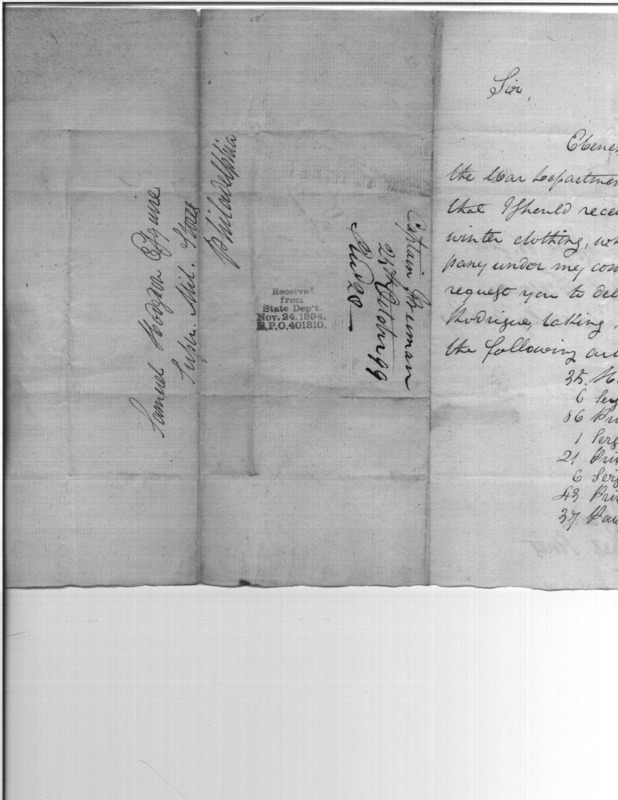 Samuel Hodgson Esquire
Super. Mil. Stores
Philadelphia
Received
from
State Dep't.
Nov. 24. 1894.
R.P.O. 401810.
Captain
25th
Sir,
Ebene
the War Departmen
that I should rece
winter clothing, wh
pany under my com
request you to del
Rodrigue, taking
the following art
35. H
6 Serg
86 Pri
1 Serg
21 Priv
6 Serg
43 Priv
37 Pai